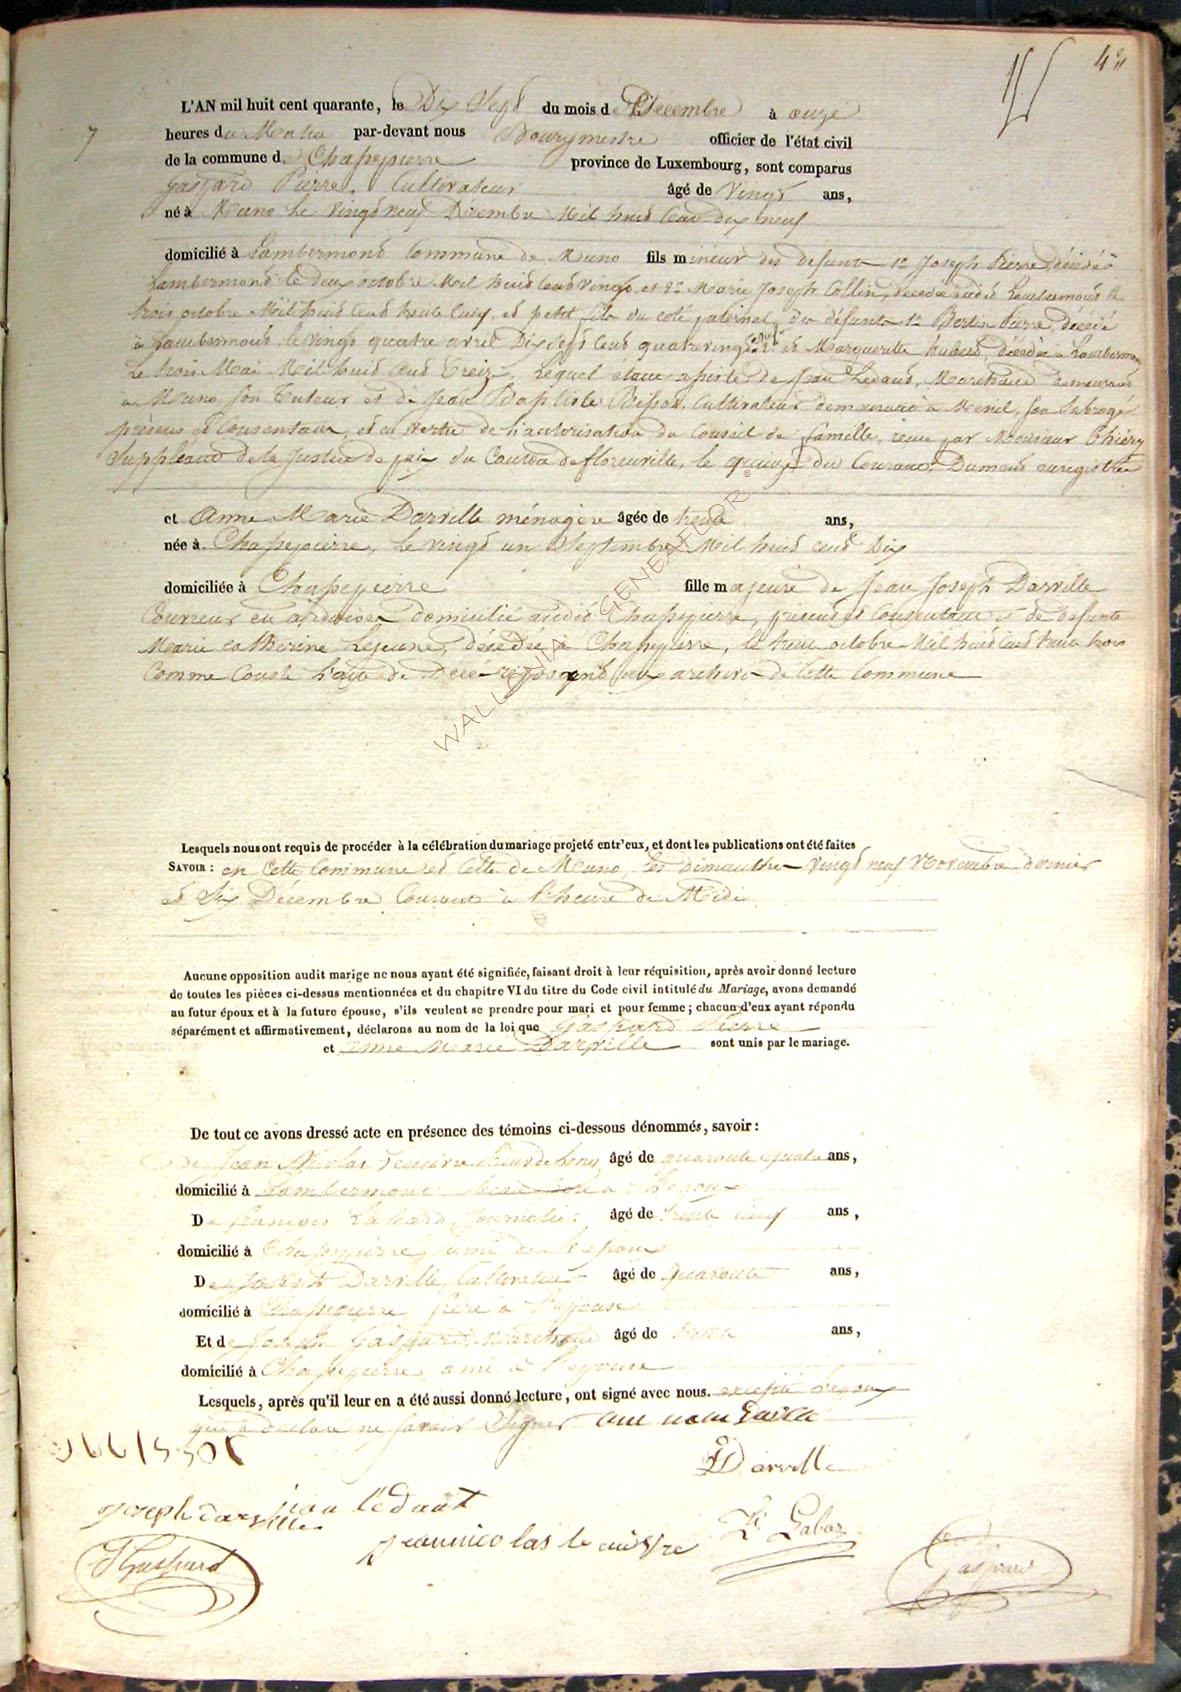 4e
7
L'AN mil huit cent quarante, le Dix Sept du mois de Décembre à onze
heures du Matin par-devant nous Bourgmestre officier de l'état civil
de la commune de Chassepierre province de Luxembourg, sont comparus
Gaspard Pierre, Cultivateur âgé de Vingt ans,
né à Muno le vingt neuf Décembre Mil huit Cent dix neuf
domicilié à Lambermont Commune de Muno fils mineur des defunts 1° Joseph Pierre, décédé à
Lambermont le deux octobre Mil huit Cent Vingt, et 2° Marie Joseph Collin, décédée audit Lambermont le
trois octobre Mil huit Cent trente cinq, et petit fils du coté paternel, du défunts 1° Bertin Pierre, décédé
à Lambermont, le vingt quatre avril Dix sept Cent quatre vingt et Marguerite hubert, décédée à Lambermont
Le trois Mai Mil huit Cent Treize, Lequel étant assisté de Jean Ledant, Marechaud demeurant
à Muno, son Tuteur et de Jean Baptiste Cultivateur demeurant à Menil, son Subrogé
présens et Consentant, et en vertu de l'autorisation du Conseil de famille, reçue par Monsieur Thiéry
Suppléant de la Justice de paix du Canton de florenville, le quinze du Courant, Dument enregistrée
et Anne Marie Darville ménagère âgée de trente ans,
née à Chassepierre, le vingt un Septembre Mil huit cent Dix
domiciliée à Chassepierre fille majeure de Jean Joseph Darville
Couvreur en ardoises domicilié audit Chassepierre, présent et Consentant et de défunte
Marie Catherine Lejeune, décédée à Chassepierre, le treize octobre Mil huit Cent trente trois
Comme Conste l'acte de Décès reposant aux archives de Cette Commune
WALLONIA GENEALOR ©
Lesquels nous ont requis de procéder à la célébration du mariage projeté entr'eux, et dont les publications ont été faites
SAVOIR : en Cette Commune et Celle de Muno, les dimanches Vingt neuf Novembre dernier
et Six Décembre Courant à l'heure de Midi
Aucune opposition audit marige ne nous ayant été signifiée, faisant droit à leur réquisition, après avoir donné lecture
de toutes les pièces ci-dessus mentionnées et du chapitre VI du titre du Code civil intitulé du Mariage, avons demandé
au futur époux et à la future épouse, s'ils veulent se prendre pour mari et pour femme ; chacun d'eux ayant répondu
séparément et affirmativement, déclarons au nom de la loi que Gaspard Pierre
et Anne Marie Darville sont unis par le mariage.
De tout ce avons dressé acte en présence des témoins ci-dessous dénommés, savoir :
de Jean Nicolas âgé de quarante quatre ans,
domicilié à Lambermont l'époux
De francois Journalier âgé de trente ans,
domicilié à Chassepierre, ami de l'époux
De Joseph Darville, Cultivateur âgé de quarante ans,
domicilié à Chassepierre frère à l'épouse
Et de Gaspard, Marechaud âgé de trente ans,
domicilié à Chassepierre, ami à l'épouse
Lesquels, après qu'il leur en a été aussi donné lecture, ont signé avec nous. excepté l'époux
qui a déclaré ne savoir Signer
Darville
joseph darville jean Lédant
jeannicolas
Gaspard
Gaspard